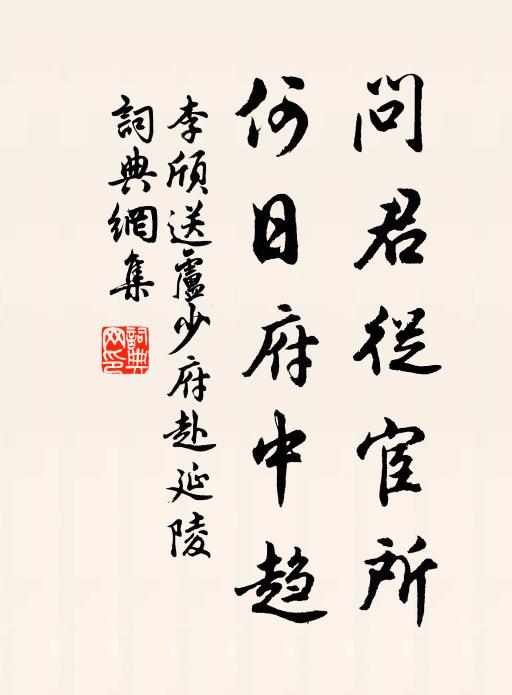 問君從宦所
何日府中趨
李頎送盧少府赴延陵
詞典網集
詞典
网印